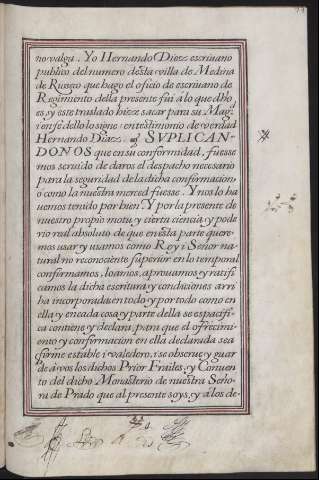 no valga. Yo Hernando Diez escriuano
publico del numero desta villa de Medina
de Rusęco que hago el oficio de escriuano de
Regimiento della presente fui a lo que dho
es, y este traslado hize sacar para su Mag.
i en fê dello lo signe: en testimonio de verdad
Hernando Diaz. SVPLICAN-
DONOS que en su conformidad, fuesse
mos seruido de daros el despacho necesario
para la seguridad de la dicha confirmacion
ò como la nuestra merced fuesse. Y nos lo ha
uemos tenido por bien. Y por la presente de
nuestro propio motu, y cierta ciencia, y pode
rio real absoluto de que en esta parte quere
mos usar y usamos como Rey i Señor na
tural no reconociente superior en lo temporal
confirmamos, loamos, aprouamos, y ratifi
camos la dicha escritura y condiciones arri
ba incorporada en todo y por todo como en
ella y en cada cosa y parte della se espacifi
ca contiene y declara, para que el ofrecimi
ento y confirmacion en ella declarada sea
firme estable i valedero, i se obserue y guar
de à vos los dichos Prior Frailes, y Conuen
to del dicho Monasterio de nuestra Seño
ra de Prado que al presente soys, y à los de-